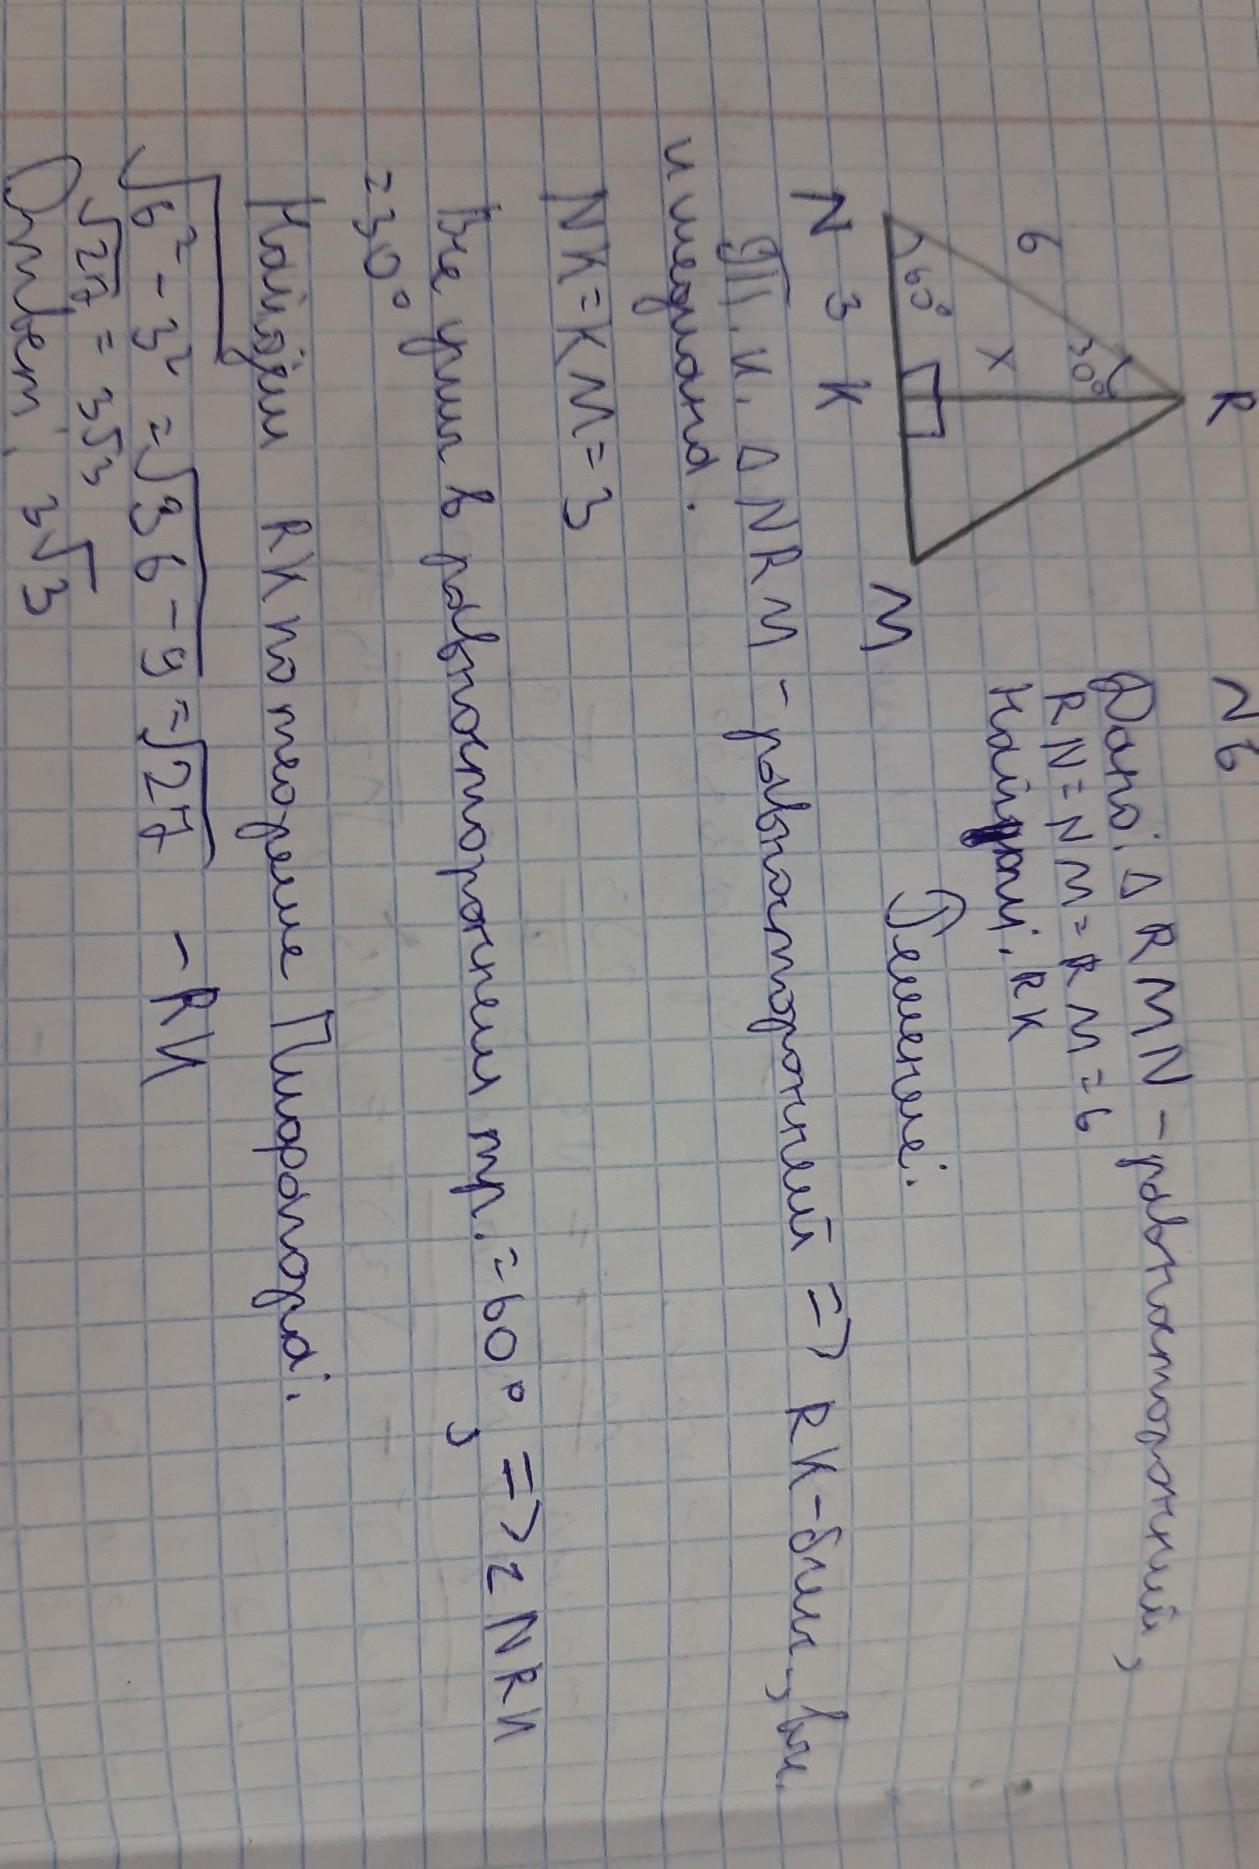 N6
Дано: △ RMN - равносторонний,
RN = NM = RM = 6
Найти: RK
R
6
30°
x
60°
N 3 K M
Решение:
Т.к. △NRM - равносторонний => RK - бисс., выс.
и медиана.
NK = KM = 3
Все углы в равностороннем тр. = 60° => ∠NRK
= 30°
Найдём RK по теореме Пифагора:
√6² - 3² = √36 - 9 = √27 - RK
√27 = 3√3
Ответ: 3√3